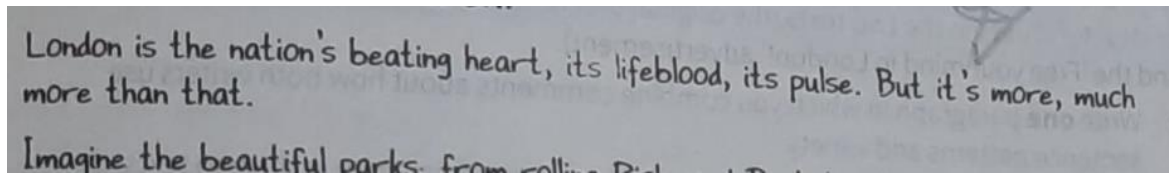 London is the nation's beating heart, its lifeblood, its pulse. But it's more, much
more than that.
Imagine the beautiful parks, from rolling